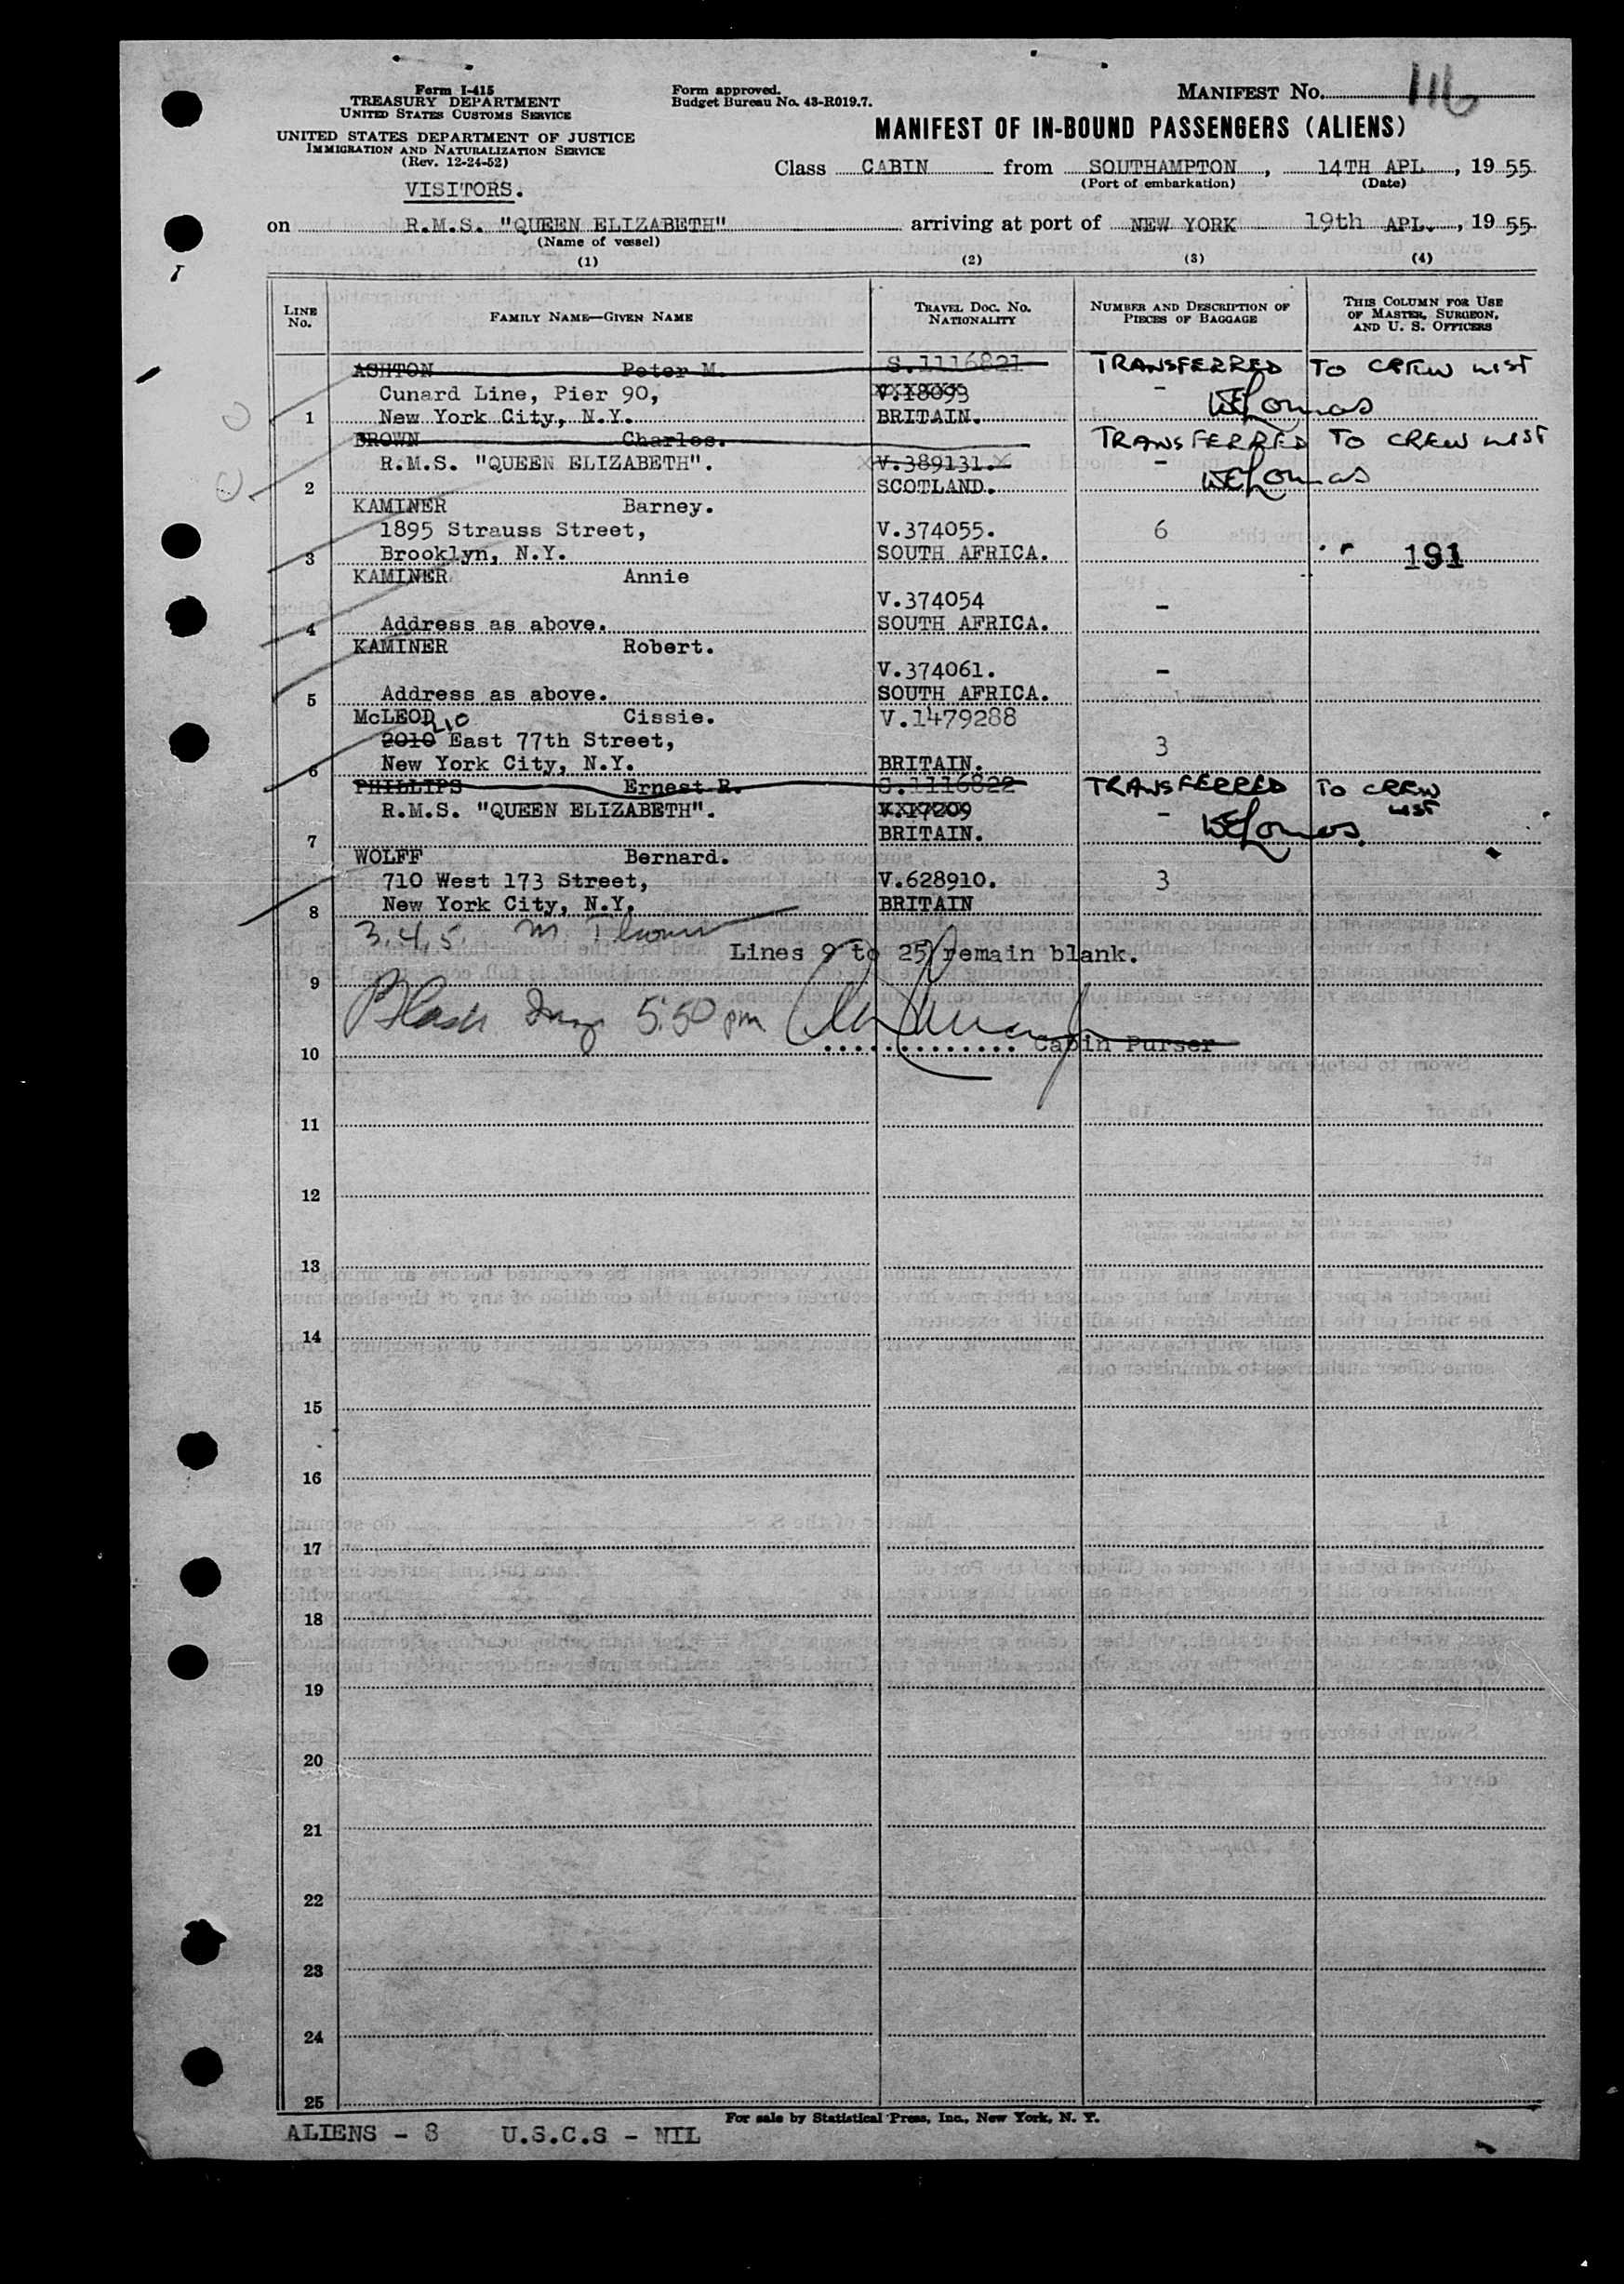 Form I-415
TREASURY DEPARTMENT
UNITED STATES CUSTOMS SERVICE
UNITED STATES DEPARTMENT OF JUSTICE
IMMIGRATION AND NATURALIZATION SERVICE
(Rev. 12-24-52)
VISITORS.
Form approved.
Budget Bureau No. 43-R019.7.
MANIFEST No. 116
MANIFEST OF IN-BOUND PASSENGERS (ALIENS)
Class CABIN from SOUTHAMPTON, 14TH APL, 1955
(Port of embarkation) (Date)
on R.M.S. "QUEEN ELIZABETH" arriving at port of NEW YORK 19th APL., 1955
(Name of vessel)
(1) (2) (3) (4)
LINE No. FAMILY NAME—GIVEN NAME TRAVEL DOC. NO. NATIONALITY NUMBER AND DESCRIPTION OF PIECES OF BAGGAGE THIS COLUMN FOR USE OF MASTER, SURGEON, AND U. S. OFFICERS
ASHTON Peter M. S.1116821 TRANSFERRED TO CREW LIST
Cunard Line, Pier 90, V.18093 -
1 New York City, N.Y. BRITAIN.
BROWN Charles. TRANSFERRED TO CREW LIST
R.M.S. "QUEEN ELIZABETH". V.389131. -
2 SCOTLAND.
KAMINER Barney.
1895 Strauss Street, V.374055. 6
3 Brooklyn, N.Y. SOUTH AFRICA. 191
KAMINER Annie
V.374054 -
4 Address as above. SOUTH AFRICA.
KAMINER Robert.
V.374061. -
5 Address as above. SOUTH AFRICA.
McLEOD Cissie. V.1479288
2010 210 East 77th Street, 3
6 New York City, N.Y. BRITAIN.
PHILLIPS Ernest R. S.1116822 TRANSFERRED TO CREW LIST
R.M.S. "QUEEN ELIZABETH". V.17209 -
7 BRITAIN.
WOLFF Bernard.
710 West 173 Street, V.628910. 3
8 New York City, N.Y. BRITAIN
3.4.5. M.
Lines 9 to 25 remain blank.
9
5:50 pm
10 Cabin Purser
11
12
13
14
15
16
17
18
19
20
21
22
23
24
25
For sale by Statistical Press, Inc., New York, N. Y.
ALIENS - 8 U.S.C.S - NIL